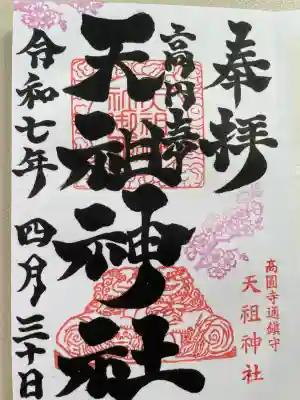 奉拝
高円寺
天祖神社
令和七年 四月 三十日
高圓寺通鎮守
天祖神社